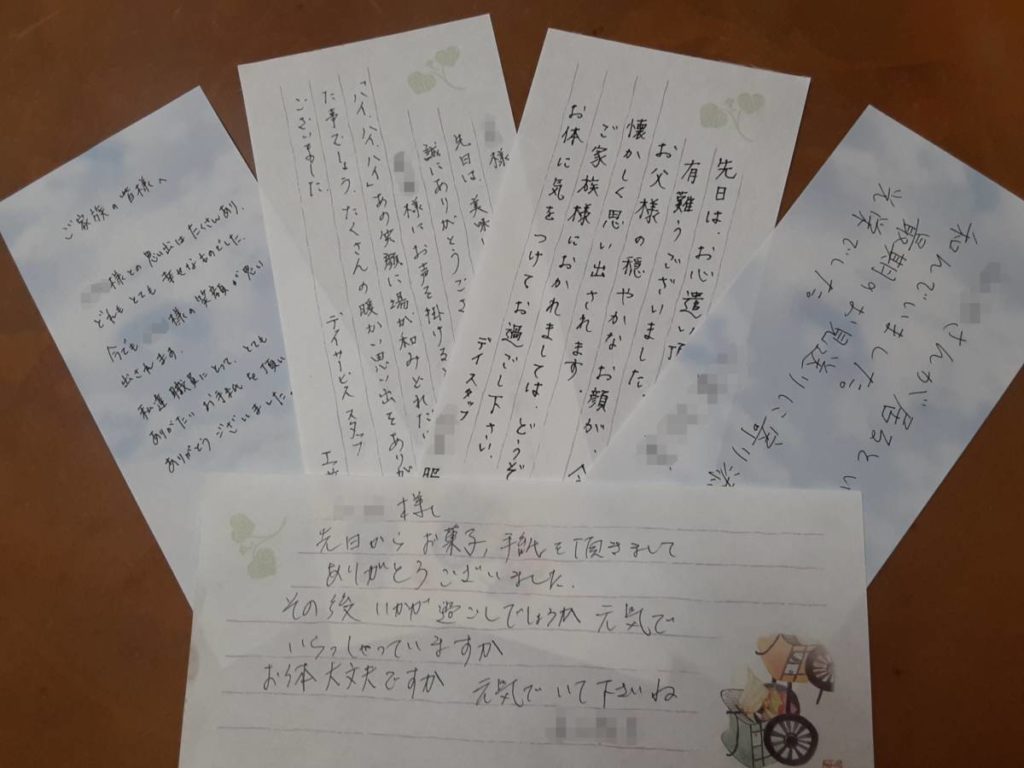 ご家族の皆様へ
様との思い出はたくさんあり、
どれもとても幸せなものでした。
今でも 様の笑顔が思い
出されます。
私達職員にとって、とても
ありがたいお手紙を頂い
ありがとうございました。
様
先日は、美味し
誠にありがとうござ
様にお声を掛ける、
「ハイ、ハイ、ハイ」あの笑顔に場が和み
た事でしょう。たくさんの暖かい思い出をありが
ございました
デイサービス スタッフ
先日は、お心遣い頂
有難うございました。
お父様の穏やかなお顔が、
懐かしく思い出されます。
ご家族様におかれましては、どうぞ
お体に気をつけてお過ごし下さい。
デイスタッフ
さんが居ると
和んでいました。
最期のお見送りに寄り添
光栄でした。
様
先日からお菓子、手紙を頂きまして
ありがとうございました。
その後 いかが過ごしでしょうか 元気で
いらっしゃっていますか
お体大丈夫ですか 元気でいて下さいね